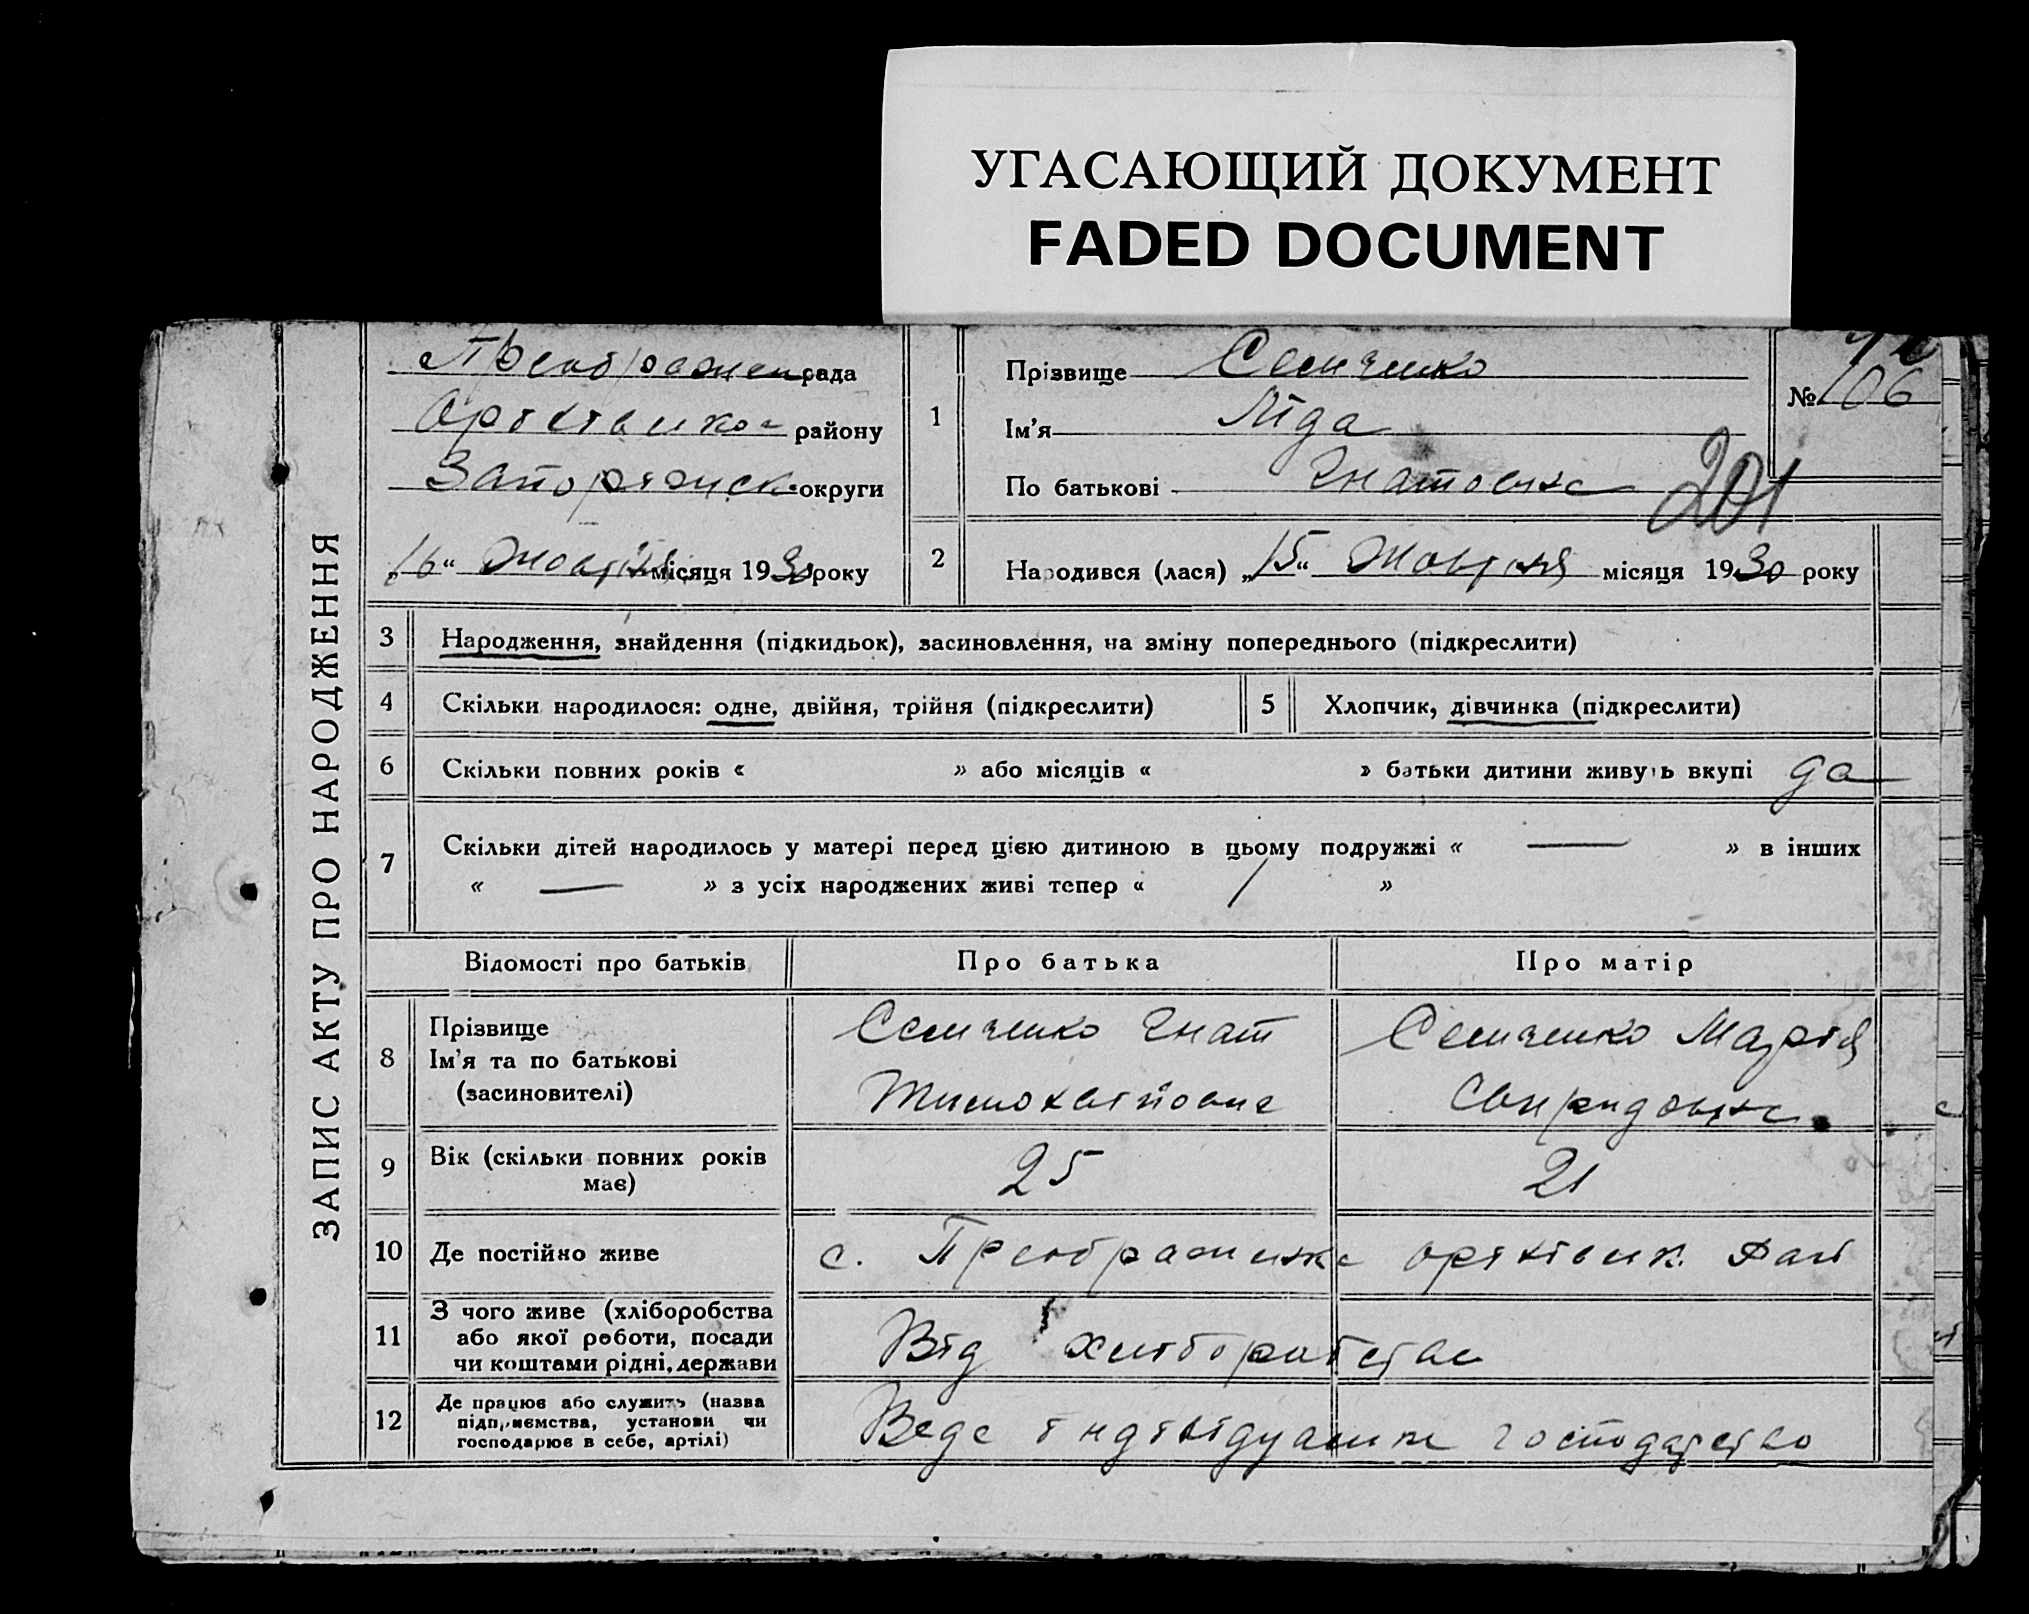 УГАСАЮЩИЙ ДОКУМЕНТ
FADED DOCUMENT
ЗАПИС АКТУ ПРО НАРОДЖЕННЯ
Преображен рада
Оріхівського району
Запоріжськ. округи
„16“ Жовтня місяця 1930 року
1
Прізвище Семченко
Ім'я Ліда
По батькові Гнатовна
№ 106
201
2
Народився (лася) „15“ Жовтня місяця 1930 року
3 Народження, знайдення (підкидьок), засиновлення, на зміну попереднього (підкреслити)
4 Скільки народилося: одне, двійня, трійня (підкреслити) 5 Хлопчик, дівчинка (підкреслити)
6 Скільки повних років « » або місяців « » батьки дитини живуть вкупі да
7 Скільки дітей народилось у матері перед цією дитиною в цьому подружжі « — » в інших
« — » з усіх народжених живі тепер « / »
Відомості про батьків Про батька Про матір
8 Прізвище
Ім'я та по батькові
(засиновителі)
Семченко Гнат
Семченко Марія
Свиридовна
9 Вік (скільки повних років
має)
25 21
10 Де постійно живе с. Преображенка Оріхівськ. Рай
11 З чого живе (хліборобства
або якої роботи, посади
чи коштами рідні, держави
Від хліборобства
12 Де працює або служить (назва
підприємства, установи чи
господарює в себе, артілі)
Веде індівідуальне господарство